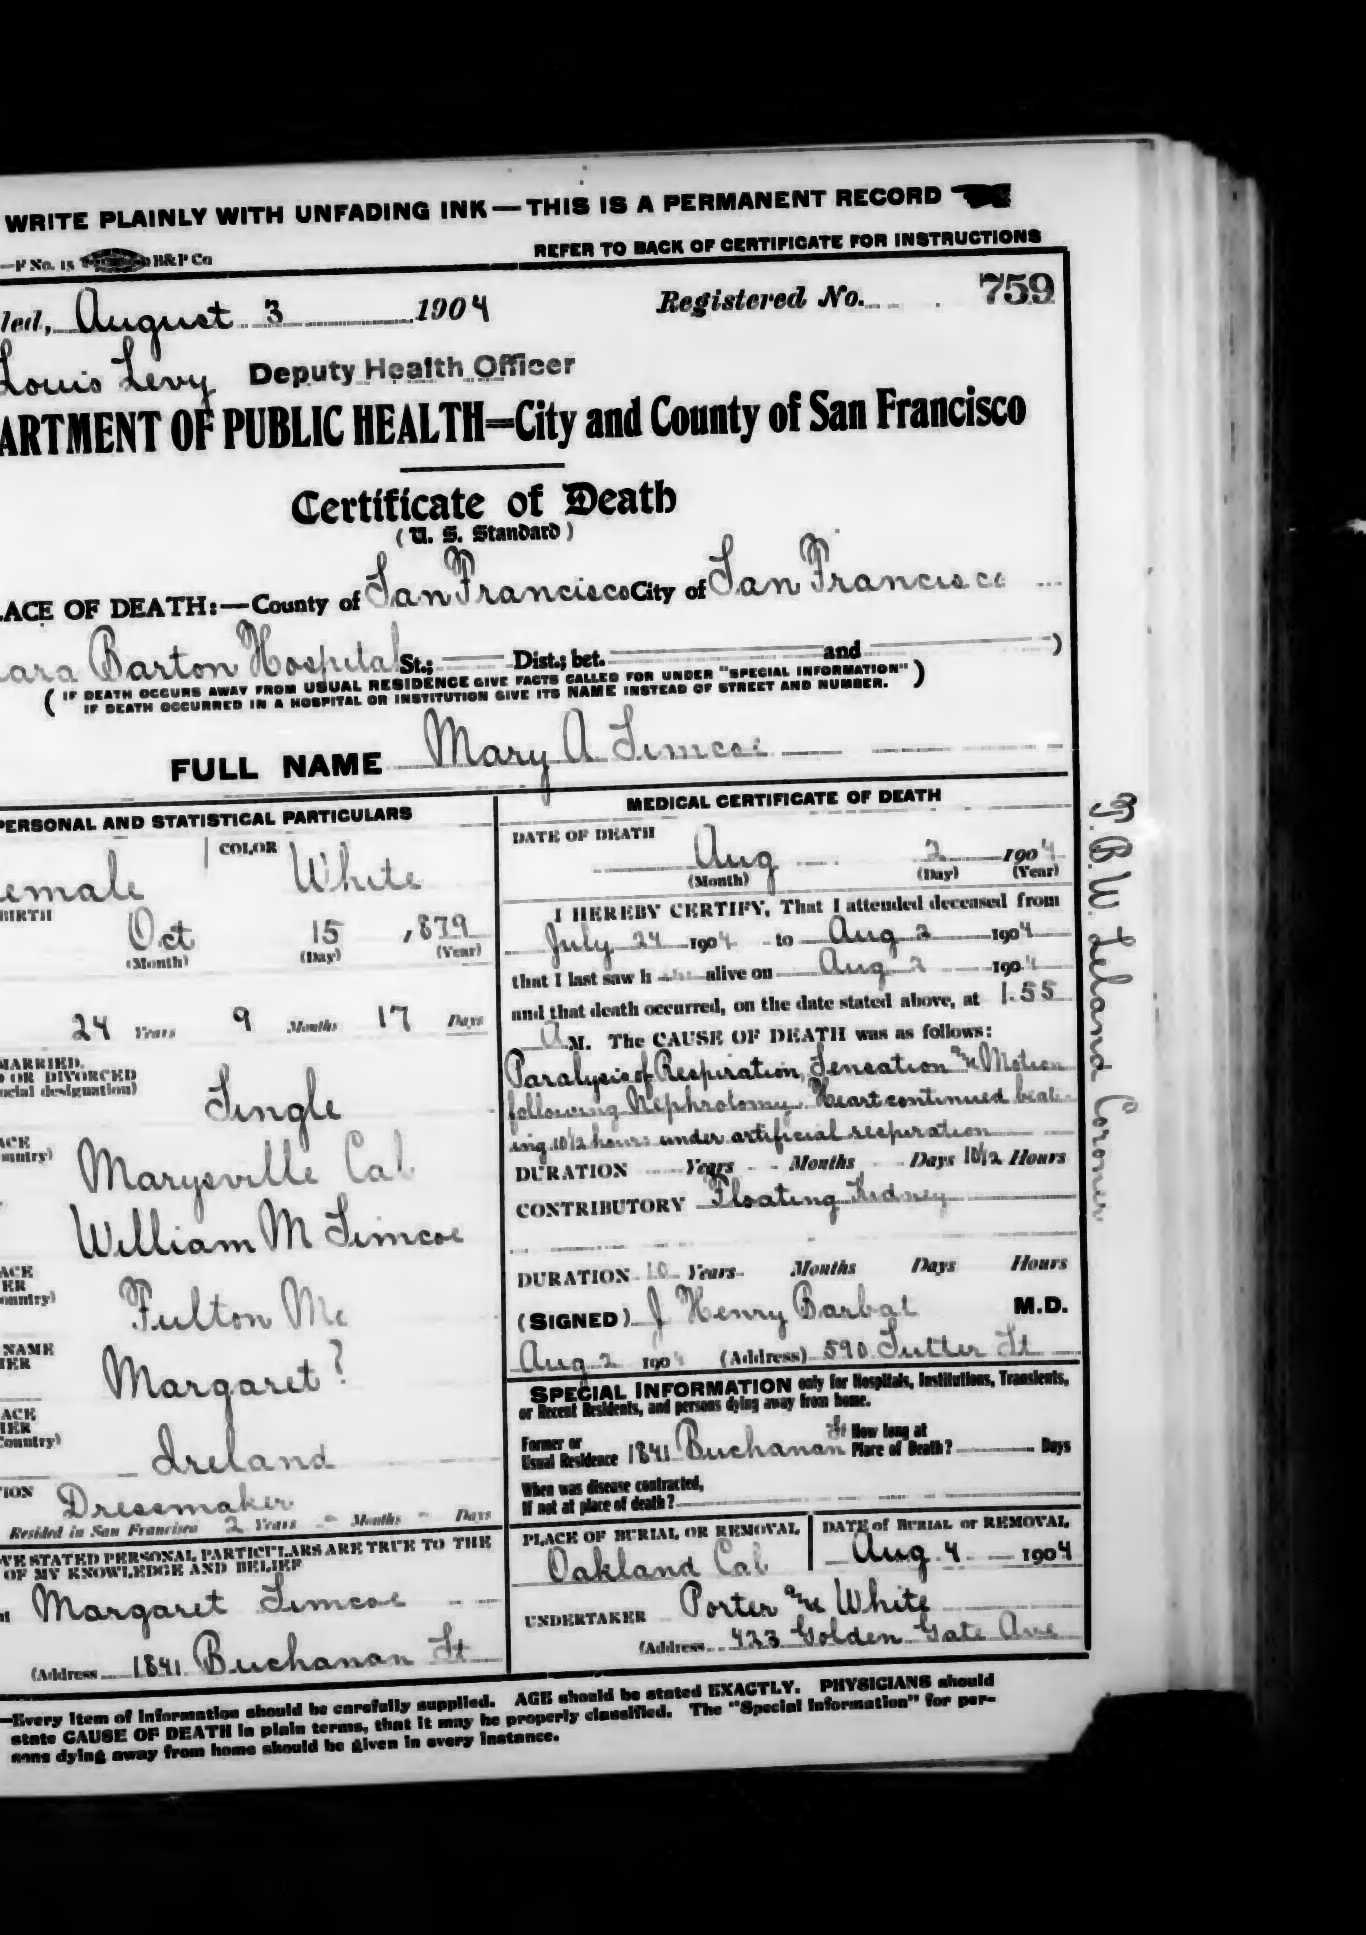 WRITE PLAINLY WITH UNFADING INK—THIS IS A PERMANENT RECORD
—P No. 15 B&P Co REFER TO BACK OF CERTIFICATE FOR INSTRUCTIONS
led, August 3 1904 Registered No. 759
Louis Levy Deputy Health Officer
ARTMENT OF PUBLIC HEALTH=City and County of San Francisco
Certificate of Death
(U. S. Standard)
LACE OF DEATH:—County of San Francisco City of San Francisco
ara Barton Hospital St.; Dist.; bet. and )
( IF DEATH OCCURS AWAY FROM USUAL RESIDENCE GIVE FACTS CALLED FOR UNDER "SPECIAL INFORMATION"
IF DEATH OCCURRED IN A HOSPITAL OR INSTITUTION GIVE ITS NAME INSTEAD OF STREET AND NUMBER. )
FULL NAME Mary A Simcoe
PERSONAL AND STATISTICAL PARTICULARS
emale COLOR White
BIRTH
Oct 15 ,879
(Month) (Day) (Year)
24 Years 9 Months 17 Days
MARRIED,
D OR DIVORCED
ocial designation)
Single
ACE
ountry)
Marysville Cal
William M Simcoe
ACE
ER
ountry)
Fulton Mc
NAME
HER
Margaret ?
ACE
HER
Country)
Ireland
TION
Dressmaker
Resided in San Francisco 2 Years - Months - Days
VE STATED PERSONAL PARTICULARS ARE TRUE TO THE
OF MY KNOWLEDGE AND BELIEF
nt Margaret Simcoe
(Address 1841 Buchanan St
MEDICAL CERTIFICATE OF DEATH
DATE OF DEATH
Aug 2 1904
(Month) (Day) (Year)
I HEREBY CERTIFY, That I attended deceased from
July 24 1904 to Aug 2 1904
that I last saw h alive on Aug 2 1904
and that death occurred, on the date stated above, at 1.55
A M. The CAUSE OF DEATH was as follows:
Paralysis of Respiration, Sensation and Motion
following Nephrotomy. Heart continued beat-
ing 10 1/2 hours under artificial respiration
DURATION Years Months Days 10 1/2 Hours
CONTRIBUTORY Floating Kidney
DURATION 10 Years Months Days Hours
(SIGNED) J Henry Barbat M.D.
Aug 2 1904 (Address) 590 Sutter St
SPECIAL INFORMATION only for Hospitals, Institutions, Transients,
or Recent Residents, and persons dying away from home.
Former or
Usual Residence 1841 Buchanan St How long at
Place of Death? Days
When was disease contracted,
If not at place of death?
PLACE OF BURIAL OR REMOVAL DATE of BURIAL or REMOVAL
Oakland Cal Aug 4 1904
UNDERTAKER Porter and White
(Address 423 Golden Gate Ave
T. B. W. Leland Coroner
—Every item of information should be carefully supplied. AGE should be stated EXACTLY. PHYSICIANS should
state CAUSE OF DEATH in plain terms, that it may be properly classified. The "Special Information" for per-
sons dying away from home should be given in every instance.